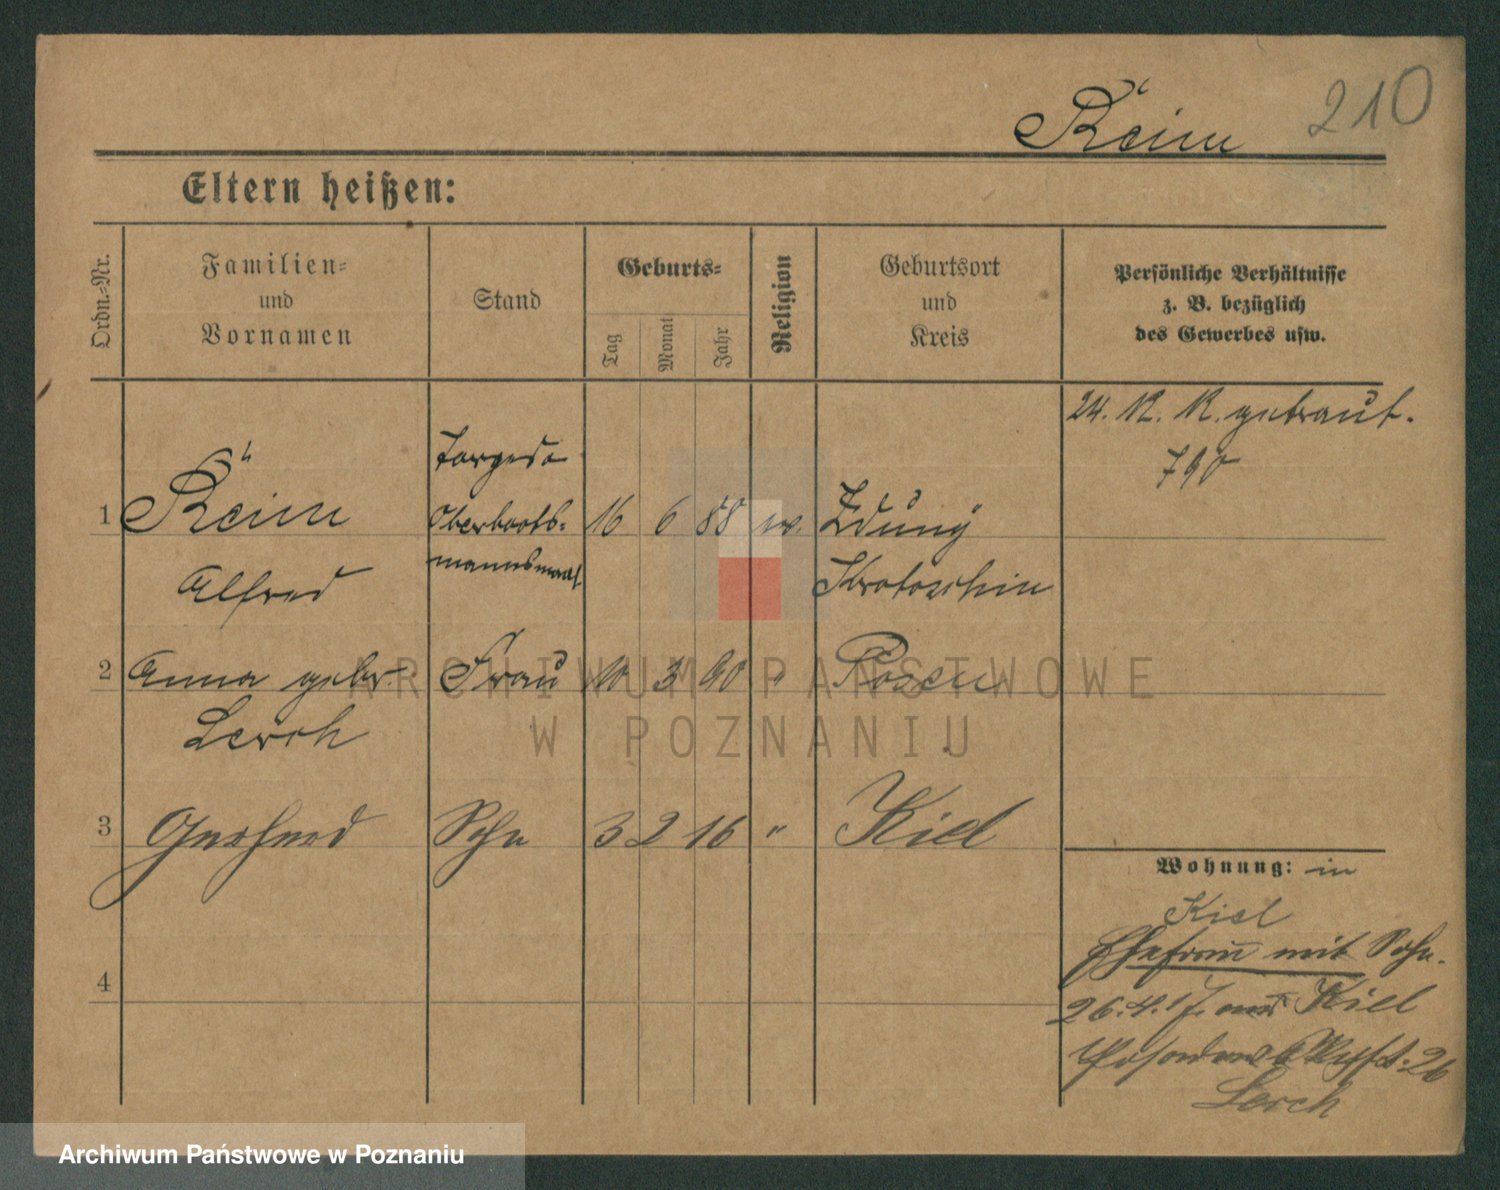 Keim 210
Eltern heißen:
Ordn.-Nr.
Familien-
und
Vornamen
Stand
Geburts-
Tag
Monat
Jahr
Religion
Geburtsort
und
Kreis
Persönliche Verhältnisse
z. B. bezüglich
des Gewerbes usw.
getraut.
790
Torpedo
1 Keim Oberboots- 16 6 88 Zduny
Alfred mannsmaat Krotoschin
2 Anna gebr. Frau 10 3 90 " Posen
Lerch
3 Gerhard Sohn 3 2 16 " Kiel
Wohnung: in
Kiel
Ehefrau mit Sohn.
4
26.4.17. aus Kiel
26
Lerch
ARCHIWUM PAŃSTWOWE
W POZNANIU
Archiwum Państwowe w Poznaniu